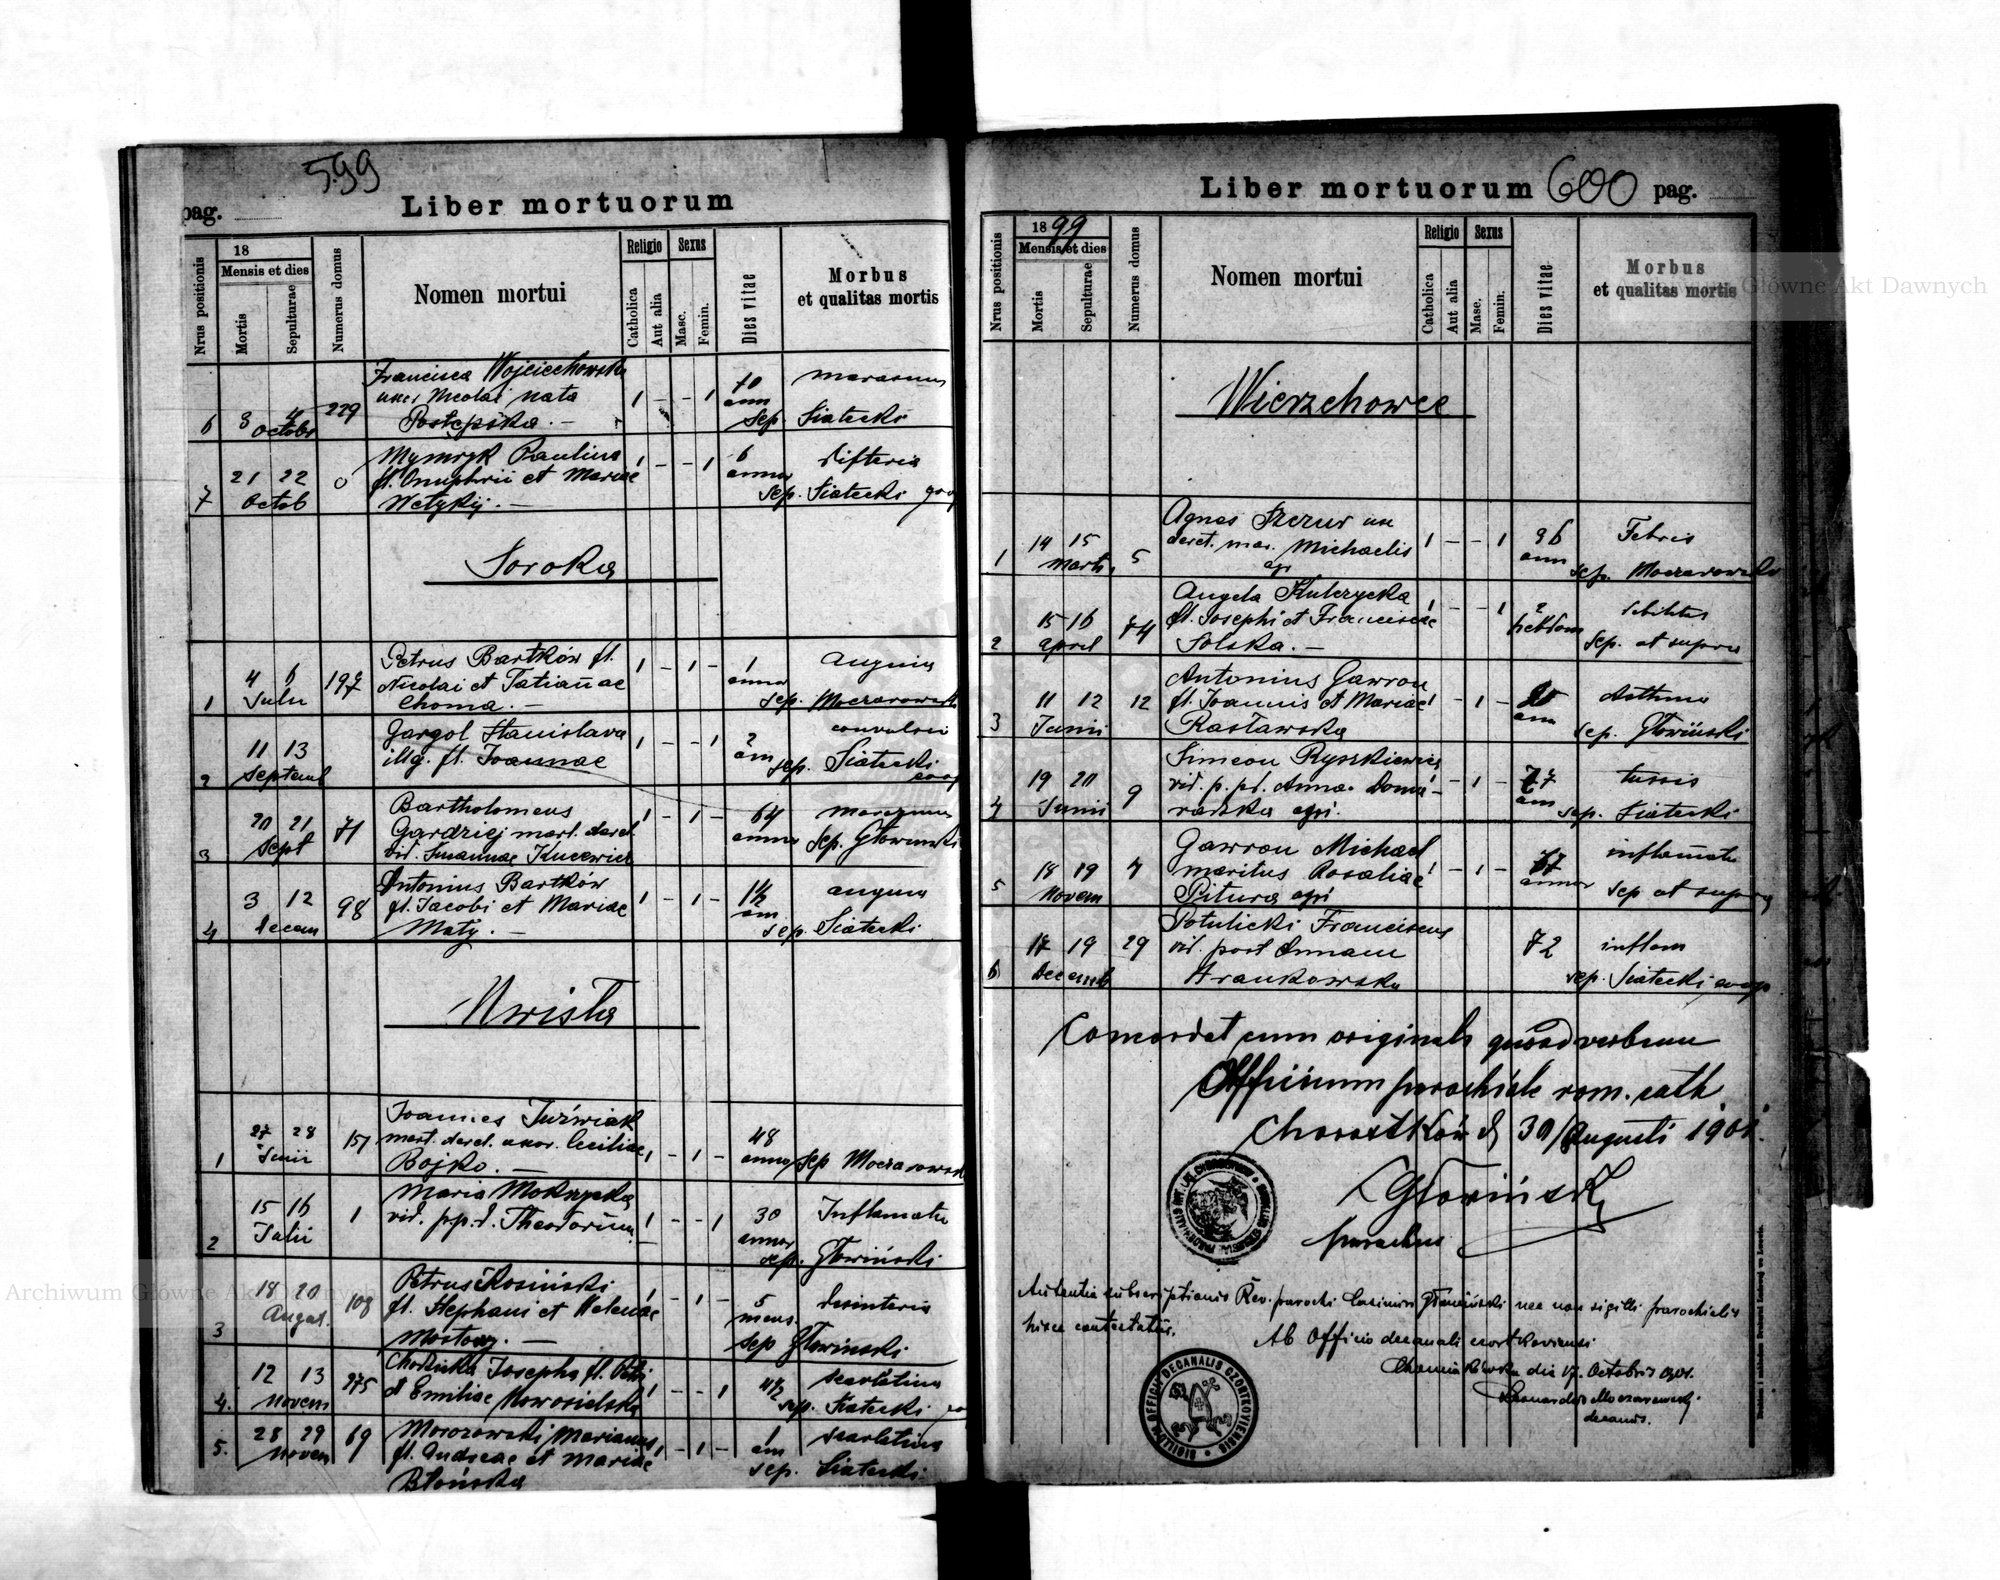 599
pag.
Liber mortuorum
Nrus positionis
18
Mensis et dies
Mortis
Sepulturae
Numerus domus
Nomen mortui
Religio
Catholica
Aut alia
Sexus
Masc.
Femin.
Dies vitae
Morbus
et qualitas mortis
Francisca Wojciechowska
Nicolai nata
6 3 4 Octobr 229
1 - - 1
70 ann
sep. Siatecki
Paulina
fl. Onuphrii et Mariae
Wetykij. -
7 21 22 Octob 0
1 - - 1
6 annor
difteria
sep. Siatecki
Soroka
Petrus Bartków fl.
Nicolai et Tatianae
Choma. -
1 4 6 Julii 197
1 - 1 -
1
angina
sep. Moczarowski
Gargol Stanislava
illeg. fl. Joannae
2 11 13 Septemb
1 - - 1
2 ann
convulsii
sep. Siatecki
coop
Bartholomeus
Gardziej mart. derel.
vid. Susannae Kucewicz
3 20 21 Sept 71
1 - 1 -
64 annor
sep. Głowiński
Antonius Bartków
fl. Jacobi et Mariae
Maty. -
4 3 12 Decem 98
1 - 1 -
angina
sep. Siatecki
Uwisła
Joannes Juźwiak
mart. derel. uxor. Ceciliae
Bojko. -
1 27 28 Junii 157
1 - 1 -
48 annor
sep Moczarowski
Maria Mokrzycka
vid. p.p.d. Theodorum
2 15 16 Julii 1
1 - - 1
30 annor
Inflamatio
sep. Głowiński
Petrus Kosiński
fl. Stephani et Helenae
Mostowy. -
3 18 20 August. 108
1 - 1 -
5 mens.
desinteria
sep Głowiński
Josepha fl. Petri
et Emiliae Nowosielska
4. 12 13 Novem 275
1 - - 1
scarlatina
sep. Siatecki
Morozowski Marianus
fl. Andreae et Mariae
Błońska
5. 28 29 Novem 69
1 - 1 -
1 ann
scarlatina
sep. Siatecki
Liber mortuorum
600
pag.
Nrus positionis
1899
Mensis et dies
Mortis
Sepulturae
Numerus domus
Nomen mortui
Religio
Catholica
Aut alia
Sexus
Masc.
Femin.
Dies vitae
Morbus
et qualitas mortis
Wierzchowce
Agnes Szczur
derel. mar. Michaelis
agr
1 14 15 Marti 5
1 - - 1
96 ann
Febris
sep. Moczarowski
Angela Kulczycka
fl. Josephi et Franciscae
Solska. -
2 15 16 April 74
1 - - 1
2 hebdom
debilitas
sep. ut supra
Antonius Gawron
fl. Joannis et Mariae
Rasławska
3 11 12 Junii 12
1 - 1 -
20 ann
Asthma
sep. Głowiński
Simeon Ryszkiewicz
vid. p. pd. Anna Doma-
radzka agri.
4 19 20 Junii 9
1 - 1 -
77 ann
tussis
sep. Siatecki
Gawron Michael
maritus Rosaliae
Pitura agri
5 18 19 Novem 7
1 - 1 -
annor
inflamatio
sep ut supra
Potulicki Franciscus
vid. post Annam
Krankowska
6 17 19 Decemb 29
72
inflam
sep. Siatecki coop
Concordat cum originali quoad verbum
Officium parochiale rom. cath.
Chorostków d 30/Augusti 1901.
Głowiński
parochus
Autentia subscriptionis Rev. parochi Casimiri Głowiński nec non sigilli parochialis
hisce contestatur.
Ab Officio decanali czortkoviensi
die 17. Octobris 1901.
Leonardus Moczarowski
decanus.
SIGILLUM OFFICII DECANALIS CZORTKOVIENSIS
Archiwum Główne Akt Dawnych
Główne Akt Dawnych